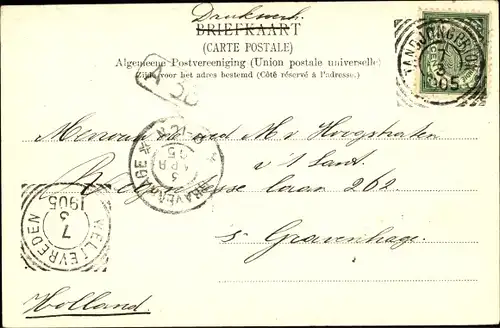 Drukwerk.
BRIEFKAART
(CARTE POSTALE)
Algemeene Postvereeniging (Union postale universelle)
Zijde voor het adres bestemd (Côté réservé à l'adresse.)
TANDJONGPRIOK
7
3
905
Mevrouw de wed M v Hoogstraten
v 't Sant.
laan 262
's Gravenhage.
'S GRAVENHAGE
6
APR
05
WELTEVREDEN
7
3
1905
Holland.